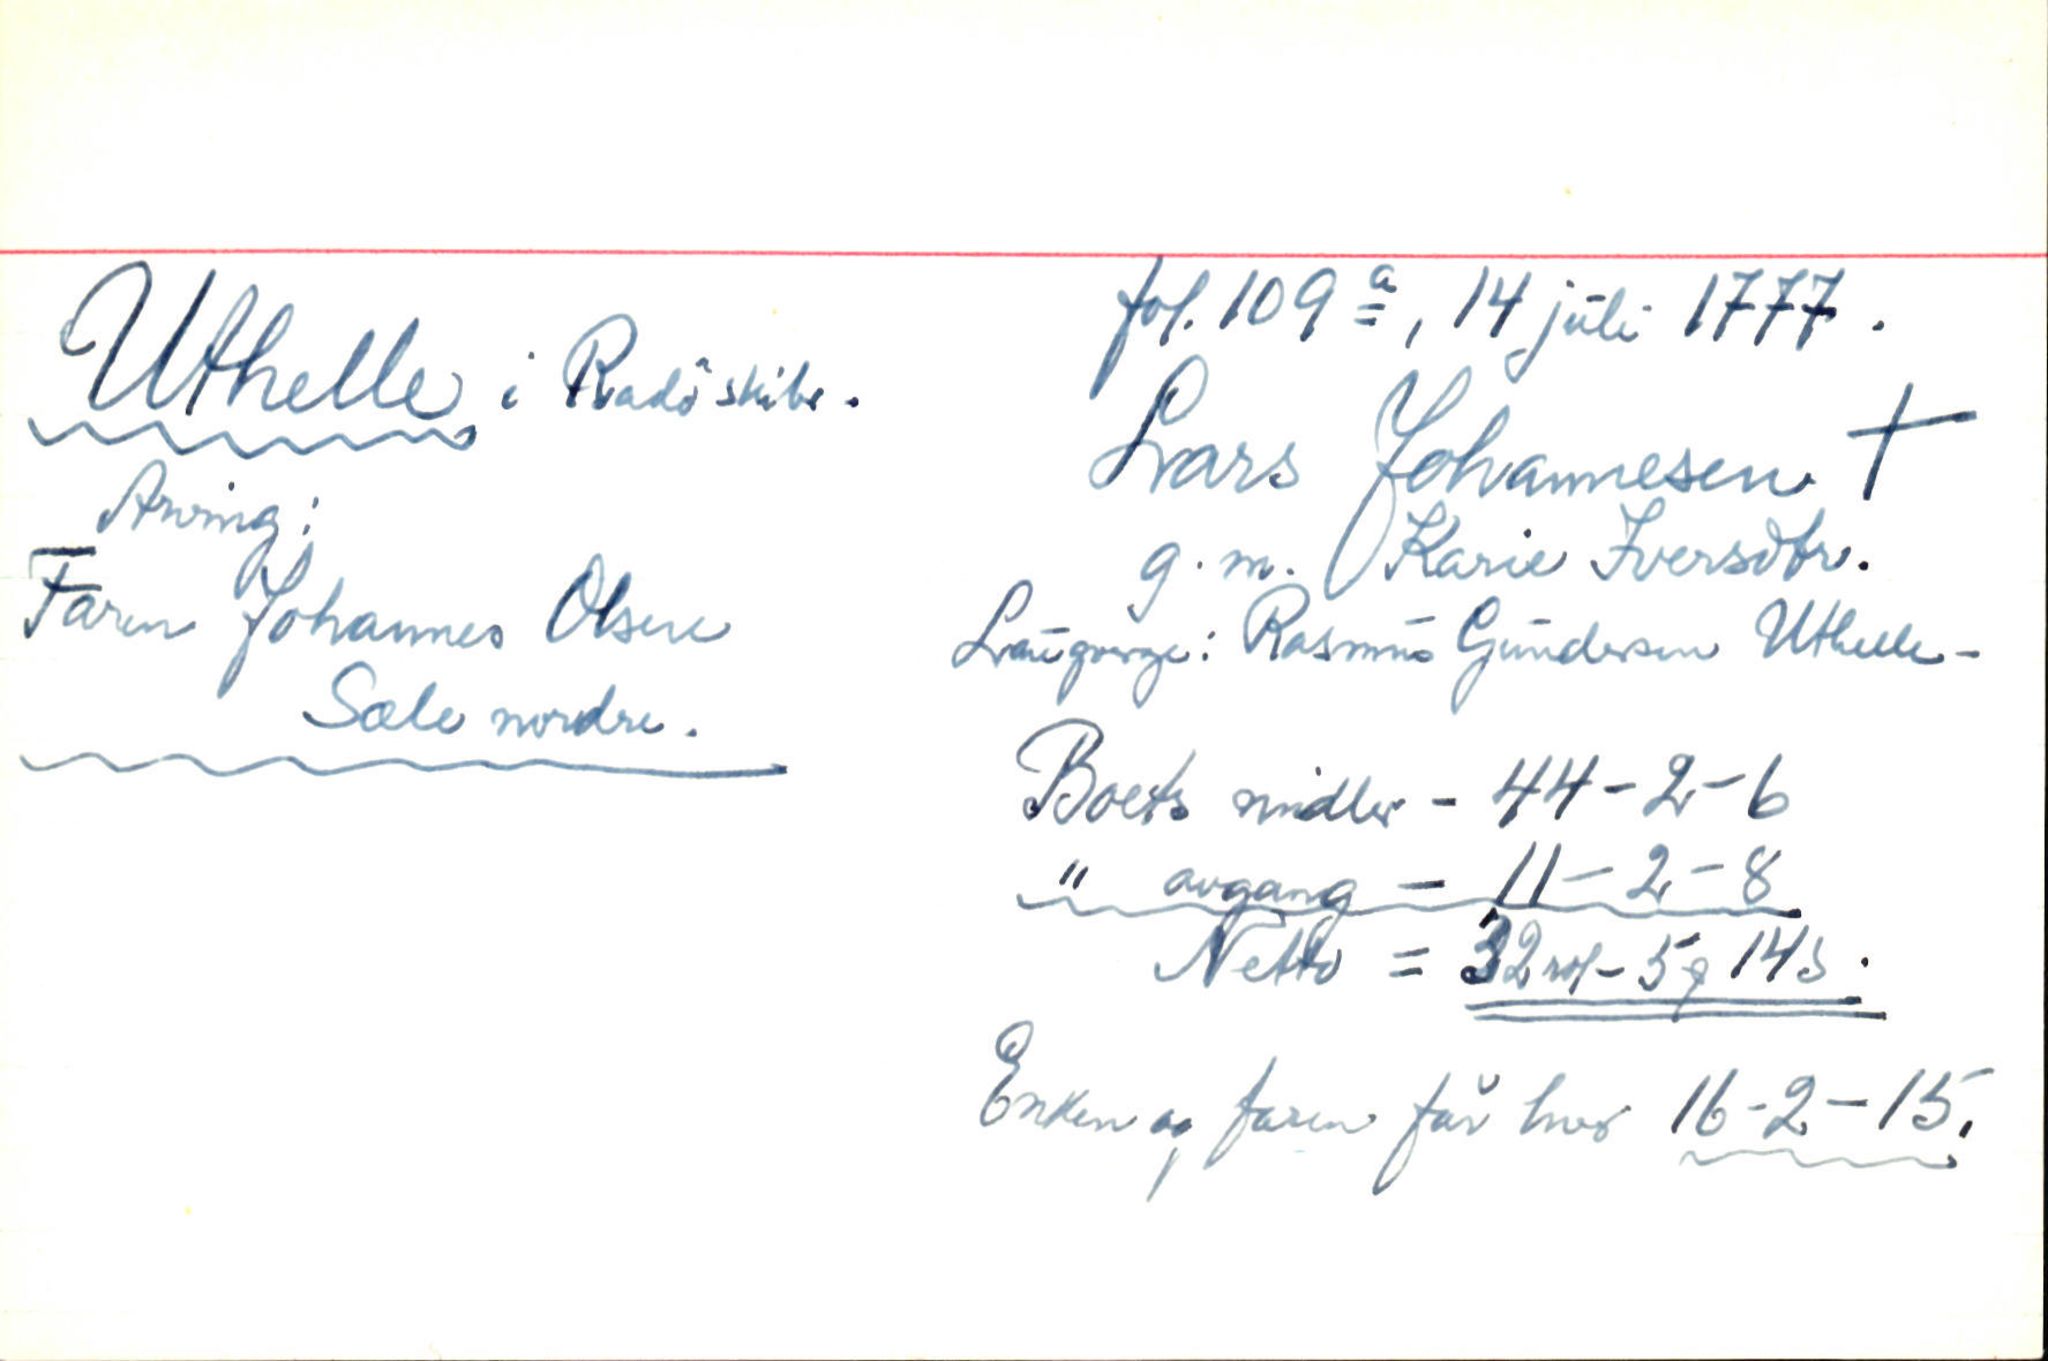 Uthelle i Radöskibr.
Arving:
Faren Johannes Olsen
Sæle nordre.
fol. 109 a, 14 juli 1777.
Lars Johannesen †
g. m. Karie Iversdtr.
Laugverge: Rasmus Gundersen Uthelle -
Boets midler - 44 - 2 - 6
" avgang - 11 - 2 - 8
Netto = 32 rd - 5 14 s.
Enken og faren får hver 16 - 2 - 15.